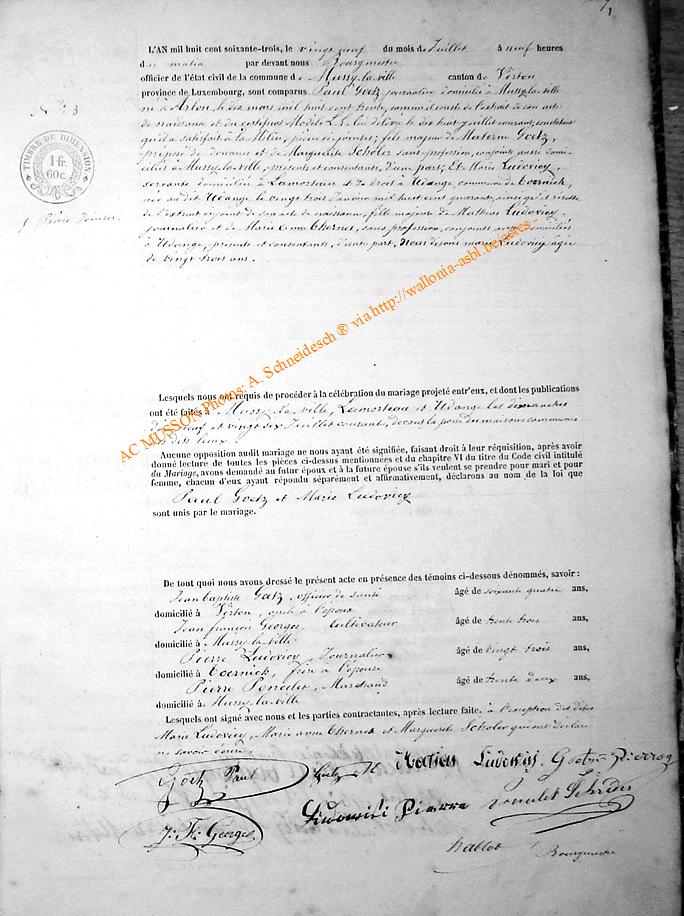 L'AN mil huit cent soixante-trois, le vingt neuf du mois de Juillet à neuf heures
du matin par devant nous Bourgmestre
officier de l'état civil de la commune de Mussy-la-ville canton de Virton
province de Luxembourg, sont comparus Paul Goetz journalier domicilié à Mussy-la-ville
né à Arlon, le dix mars mil huit cent trente, comme il conste de l'extrait de son acte
de naissance et du certificat Modèle L.L. lui délivré le dix huit juillet courant, constatant
qu'il a satisfait à la Milice, pièces ci-jointes; fils majeur de Materne Goetz,
préposé de douanes et de Marguerite Scholer sans profession, conjoints aussi domi-
ciliés à Mussy-la-ville, présents et consentants, d'une part; Et Marie Ludovicy
servante domiciliée à Lamorteau et de droit à Udange, commune de Toernich,
née au dit Udange le vingt trois Janvier mil huit cent quarante, ainsi qu'il résulte
de l'extrait ci-joint de son acte de naissance, fille majeure de Mathias Ludovicy,
journalier et de Marie Anne Thernes, sans profession, conjoints aussi domiciliés
à Udange, présents et consentants, d'autre part, Nous disons Marie Ludovicy agée
de vingt trois ans.
N° 3
TIMBRE DE DIMENSION
1 fr.
60c.
Lesquels nous ont requis de procéder à la célébration du mariage projeté entr'eux, et dont les publications
ont été faites à Mussy-la-ville, Lamorteau et Udange les dimanches
dix neuf et vingt six Juillet courant, devant la porte des maisons communes
des dits lieux.
Aucune opposition audit mariage ne nous ayant été signifiée, faisant droit à leur réquisition, après avoir
donné lecture de toutes les pièces ci-dessus mentionnées et du chapitre VI du titre du Code civil intitulé
du Mariage, avons demandé au futur époux et à la future épouse s'ils veulent se prendre pour mari et pour
femme, chacun d'eux ayant répondu séparément et affirmativement, déclarons au nom de la loi que
Paul Goetz et Marie Ludovicy
sont unis par le mariage.
De tout quoi nous avons dressé le présent acte en présence des témoins ci-dessous dénommés, savoir :
Jean baptiste Goetz, officier de santé âgé de soixante quatre ans,
domicilié à Virton, oncle à l'époux
Jean françois Georges, Cultivateur âgé de trente trois ans,
domicilié à Mussy-la-ville
Pierre Ludovicy, Journalier âgé de vingt trois ans,
domicilié à Toernich, frère à l'épouse
Pierre Ponclet, Marchand âgé de trente deux ans,
domicilié à Mussy-la-ville
Lesquels ont signé avec nous et les parties contractantes, après lecture faite, à l'exception des dites
Marie Ludovicy, Marie anne Thernes et Marguerite Scholer qui ont déclaré
ne savoir écrire.
Goetz Paul Goetz M Matias Ludowisi Goetz
Ludowisi Pierre
J: F: Georges
Bourgmestre
AC MUSSON Photos: A. Schneidesch ® via http://wallonia-asbl.be/actes -